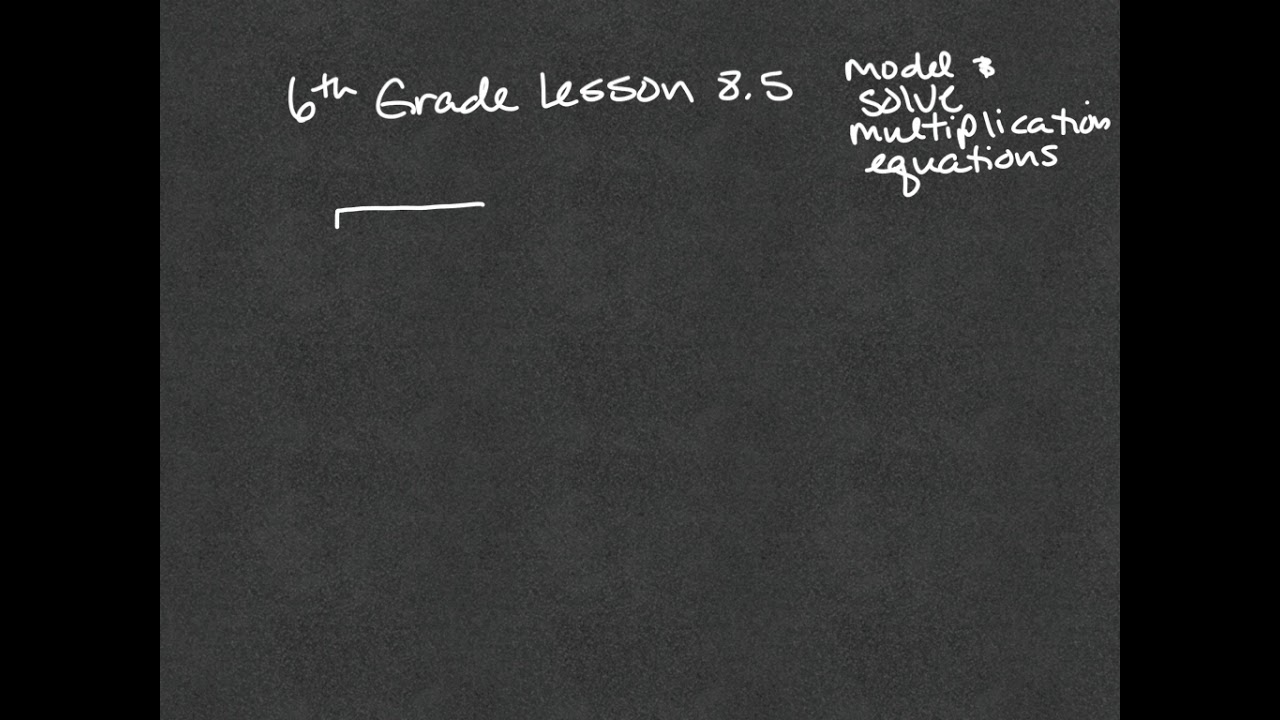 6th Grade Lesson 8.5
model &
solve
multiplication
equations